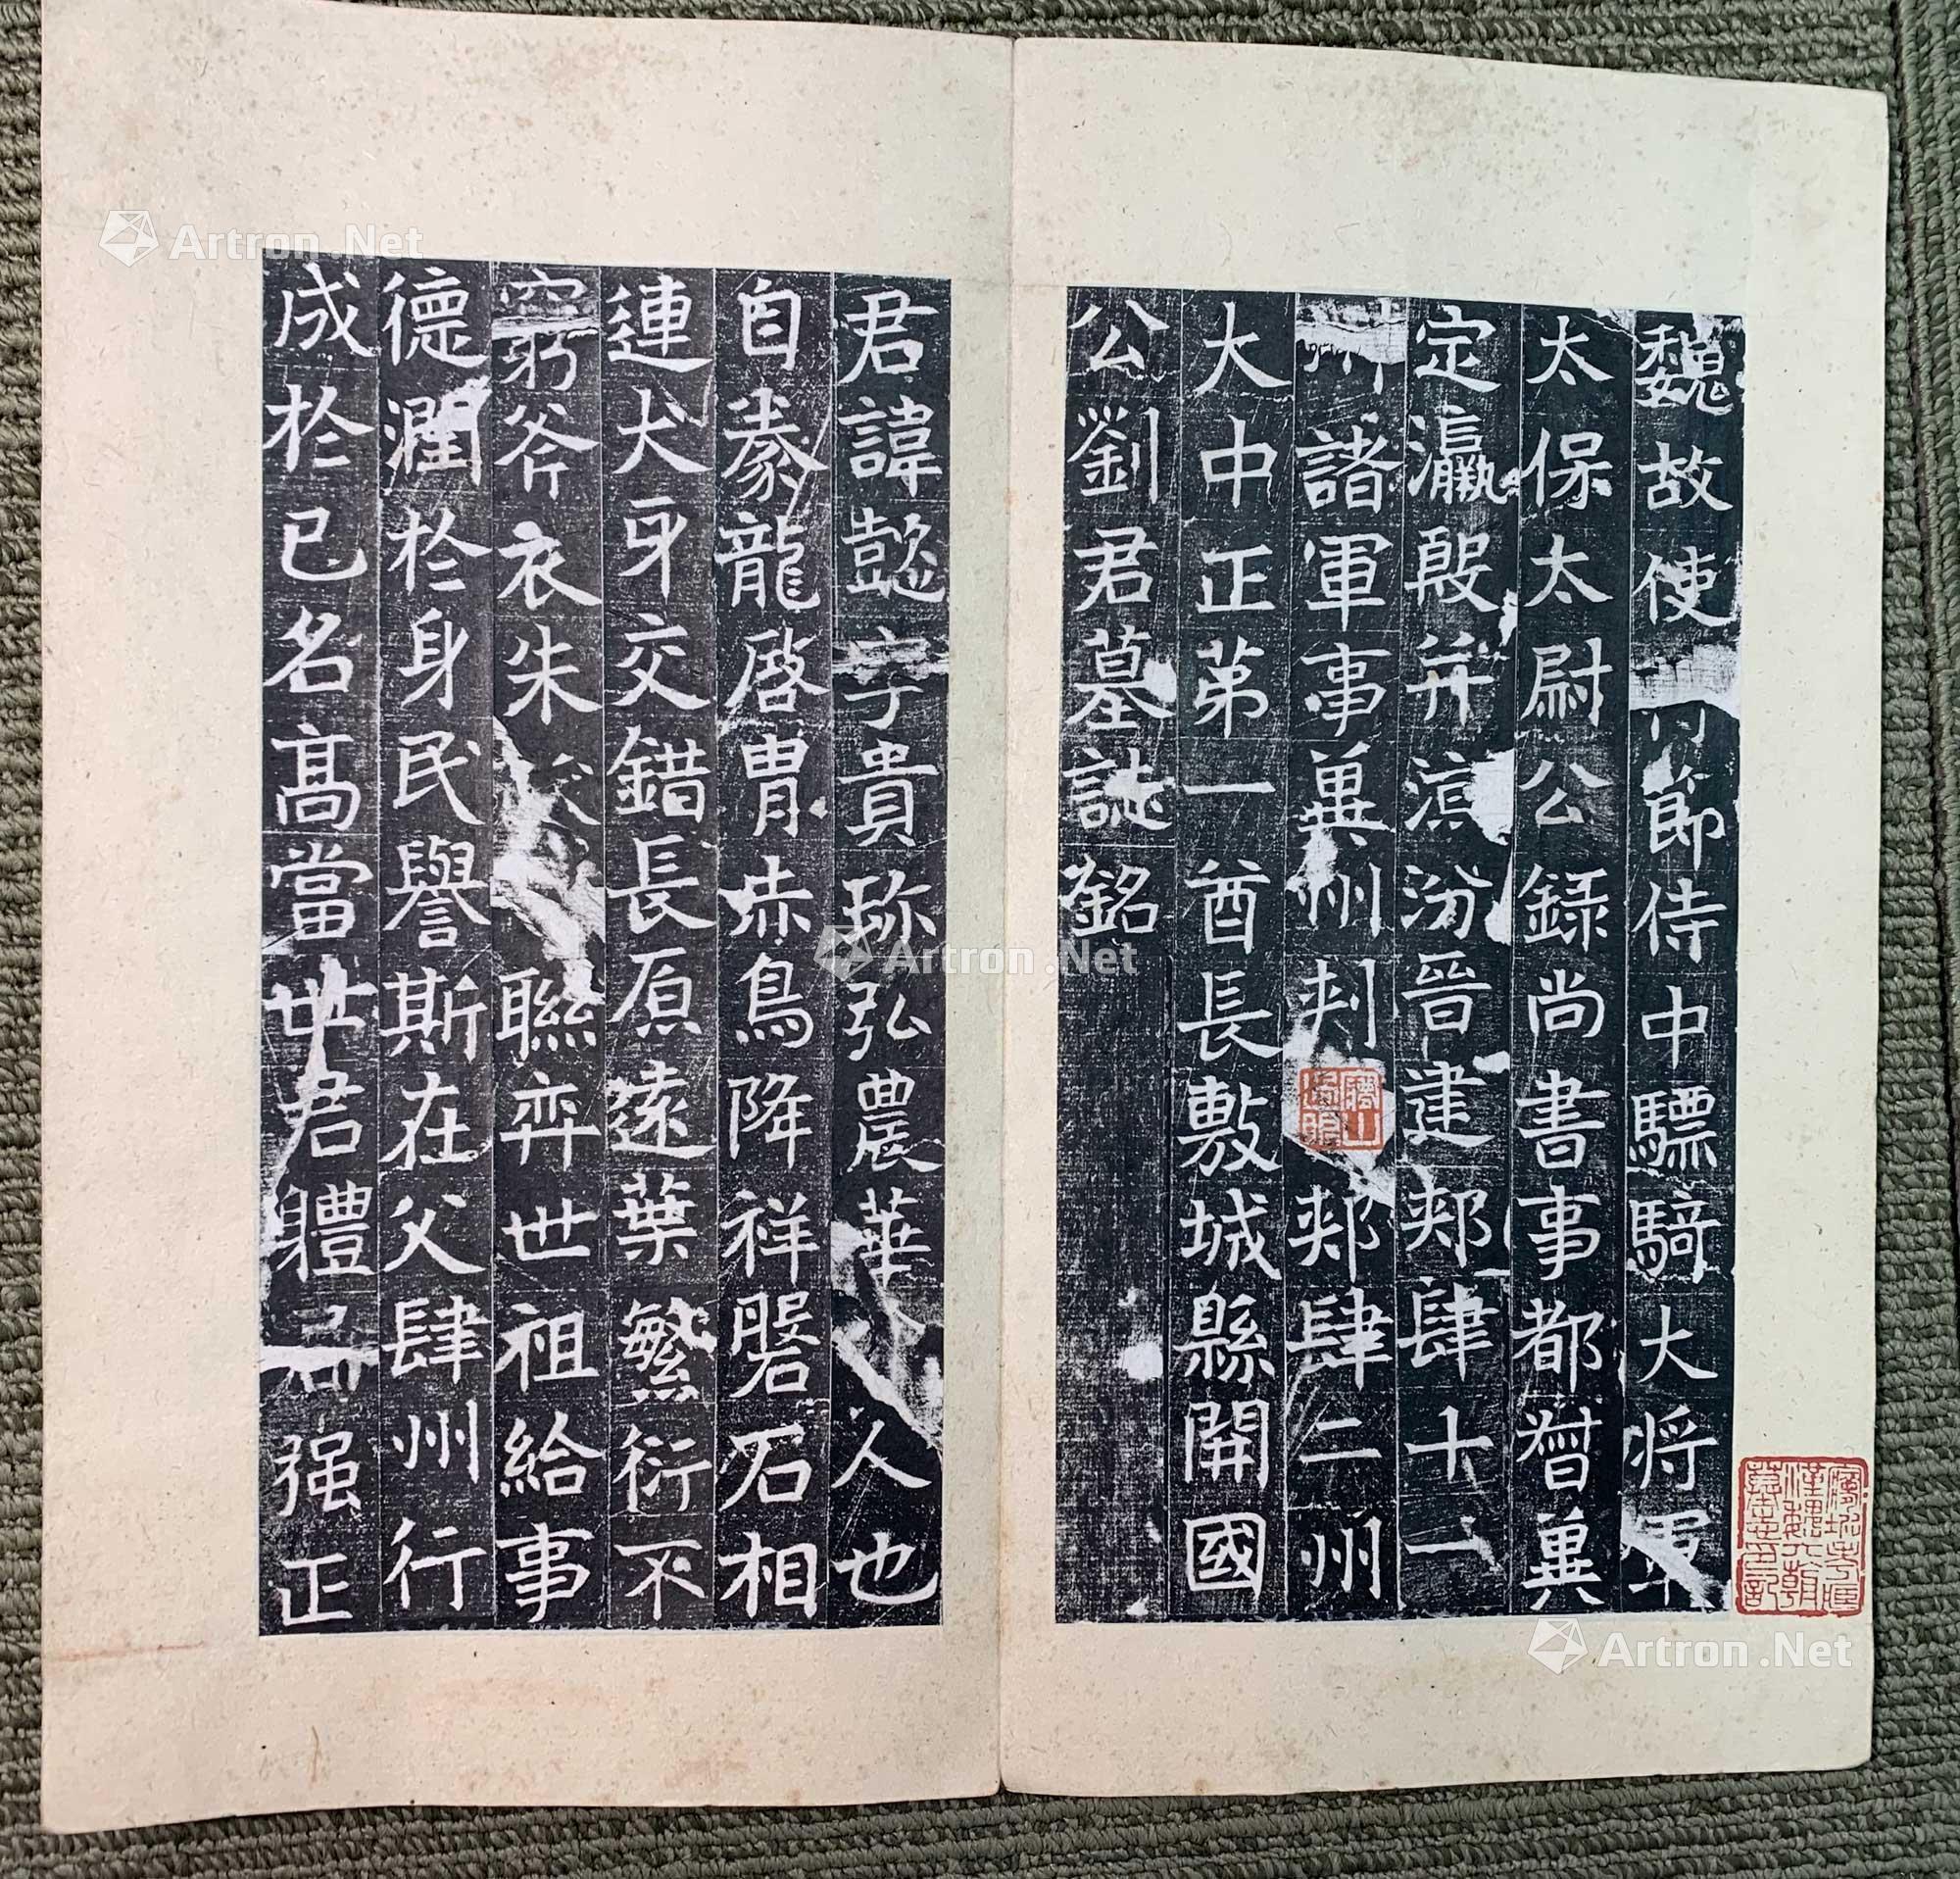 魏故使 節侍中驃騎大将軍
太保太尉公録尚書事都督冀
定瀛殷并滄汾晉建郟肆十一
州諸軍事冀州刺 郟肆二州
大中正弟一酋長敷城縣開國
公劉君墓誌銘
君諱懿字貴珎弘農華 人也
自豢龍啓胄赤鳥降祥磐石相
連犬牙交錯長原遠葉繁衍不
窮斧衣朱 聯弈世祖給事
德潤於身民譽斯在父肆州行
成於已名高當世君體 强正
Artron.Net
Artron.Net
Artron.Net